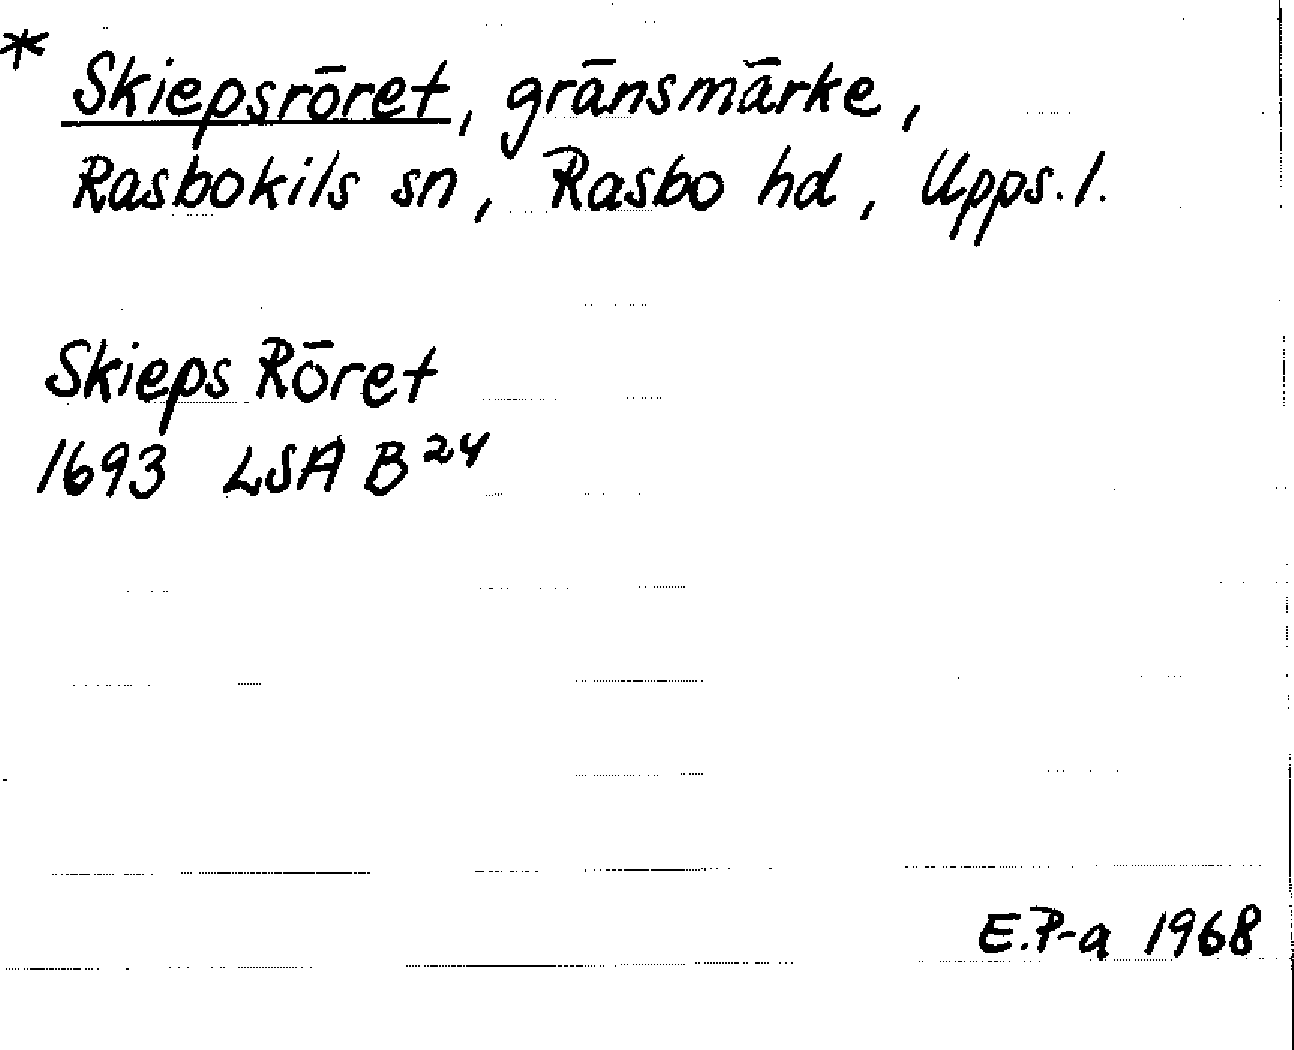 * Skiepsröret, gränsmärke,
Rasbokils sn, Rasbo hd, Upps. l.
Skieps Röret
1693 LSA B²⁴
E.P-a 1968